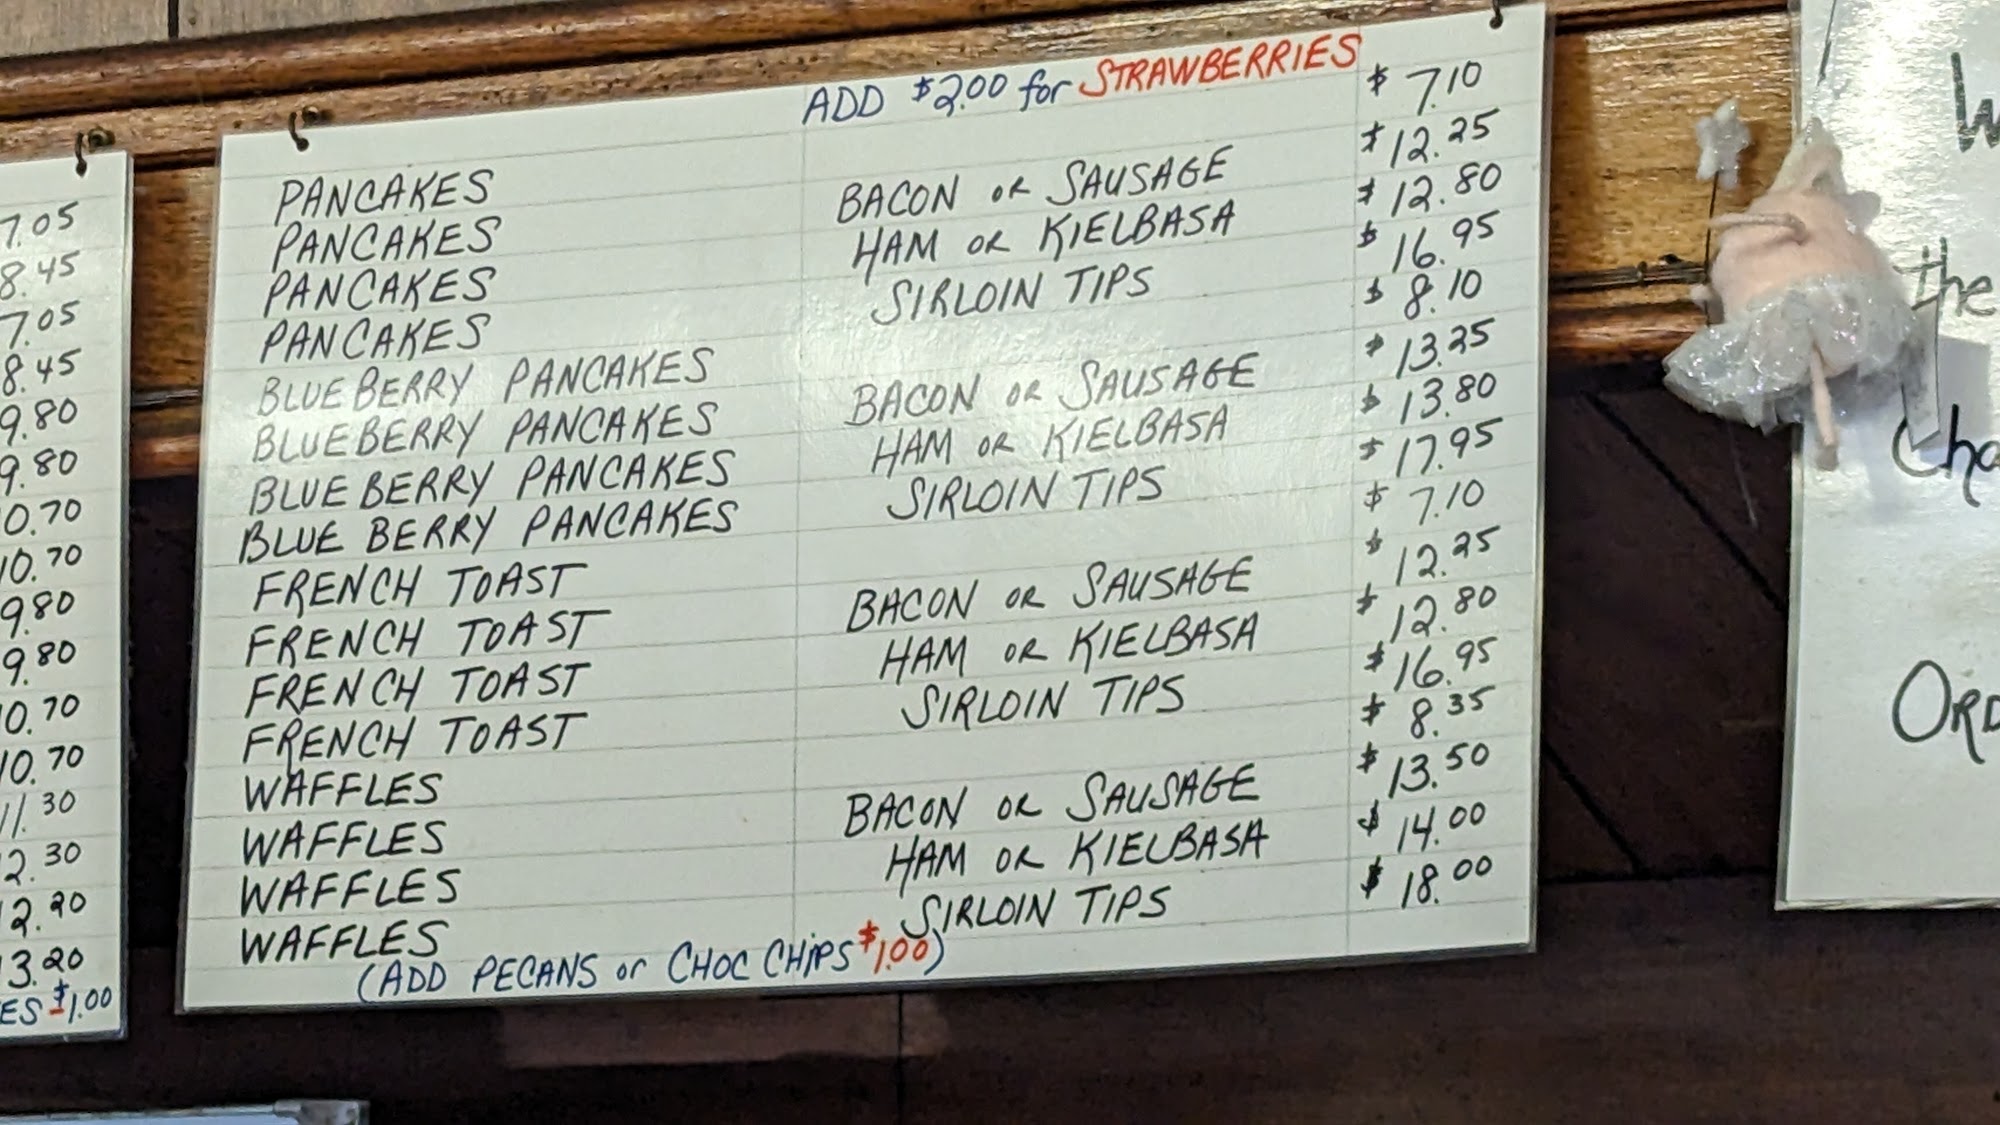 ADD $2.00 for STRAWBERRIES
PANCAKES $7.10
PANCAKES BACON OR SAUSAGE $12.25
PANCAKES HAM OR KIELBASA $12.80
PANCAKES SIRLOIN TIPS $16.95
BLUEBERRY PANCAKES $8.10
BLUEBERRY PANCAKES BACON OR SAUSAGE $13.25
BLUEBERRY PANCAKES HAM OR KIELBASA $13.80
BLUE BERRY PANCAKES SIRLOIN TIPS $17.95
FRENCH TOAST $7.10
FRENCH TOAST BACON OR SAUSAGE $12.25
FRENCH TOAST HAM OR KIELBASA $12.80
FRENCH TOAST SIRLOIN TIPS $16.95
WAFFLES $8.35
WAFFLES BACON OR SAUSAGE $13.50
WAFFLES HAM OR KIELBASA $14.00
WAFFLES SIRLOIN TIPS $18.00
(ADD PECANS or CHOC CHIPS $1.00)
7.05
8.45
7.05
8.45
9.80
9.80
0.70
10.70
9.80
9.80
0.70
10.70
11.30
2.30
2.20
3.20
ES $1.00
the